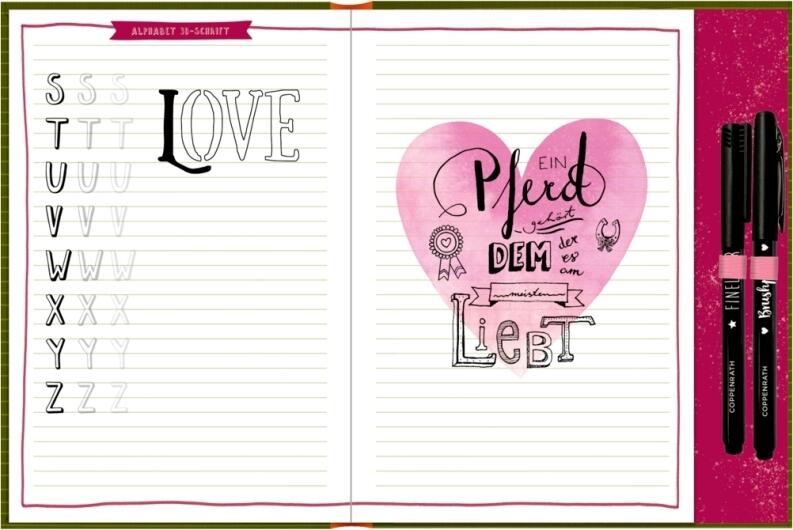 ALPHABET 3D-SCHRIFT
S S S
T T T
U U U
V V V
W W W
X X X
Y Y Y
Z Z Z
LOVE
EIN
Pferd
gehört
DEM
der
es
am
meisten
LieBT
COPPENRATH
COPPENRATH Brushp